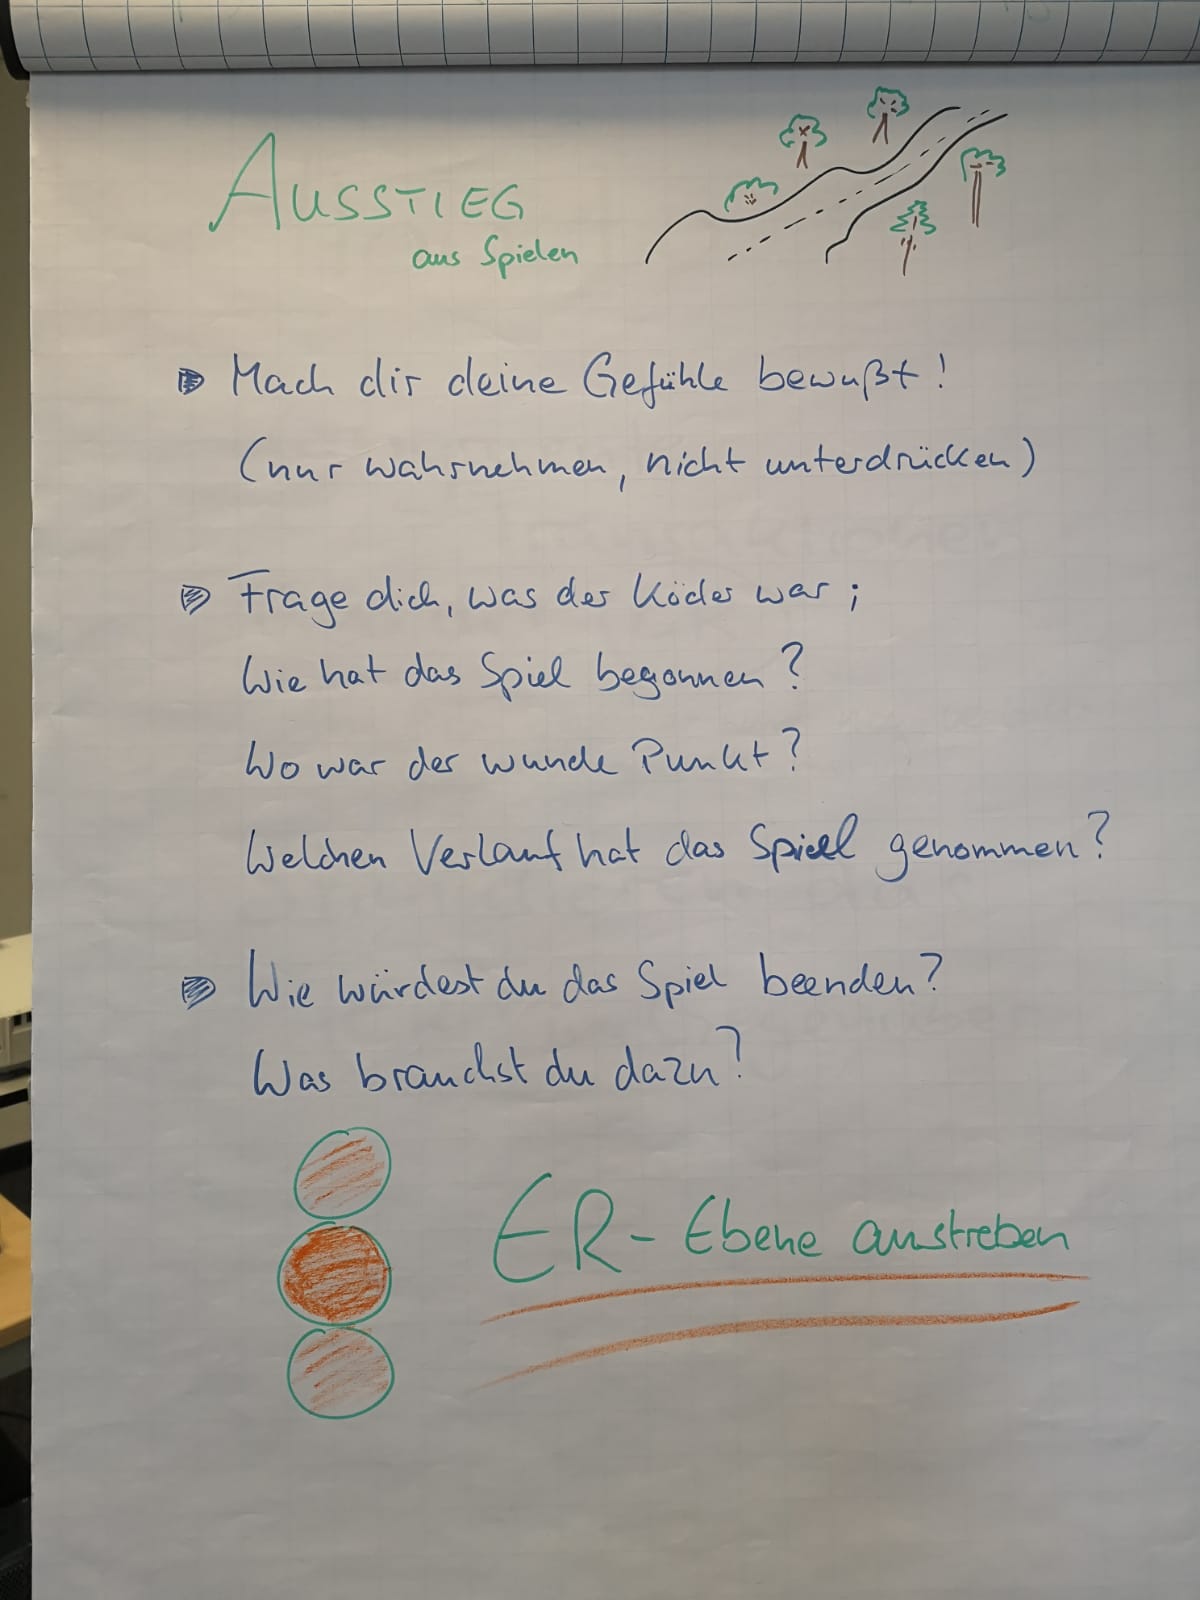 AUSSTIEG
aus Spielen
Mach dir deine Gefühle bewußt!
(nur wahrnehmen, nicht unterdrücken)
Frage dich, was der Köder war;
Wie hat das Spiel begonnen?
Wo war der wunde Punkt?
Welchen Verlauf hat das Spiel genommen?
Wie würdest du das Spiel beenden?
Was brauchst du dazu?
ER-Ebene anstreben